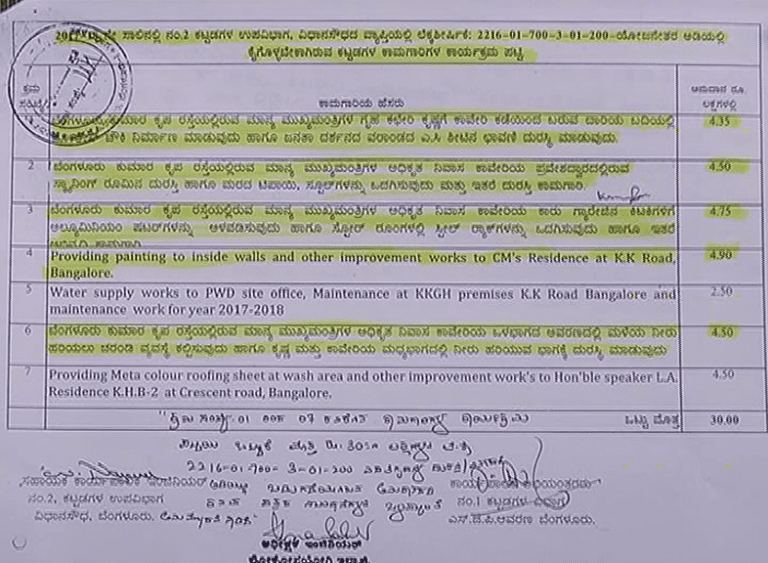 ನೇ ಸಾಲಿನಲ್ಲಿ ನಂ.2 ಕಟ್ಟಡಗಳ ಉಪವಿಭಾಗ, ವಿಧಾನಸೌಧದ ವ್ಯಾಪ್ತಿಯಲ್ಲಿ ಲೆಕ್ಕಶೀರ್ಷಿಕೆ: 2216-01-700-3-01-200-ಯೋಜನೇತರ ಅಡಿಯಲ್ಲಿ
ಕೈಗೊಳ್ಳಬೇಕಾಗಿರುವ ಕಟ್ಟಡಗಳ ಕಾಮಗಾರಿಗಳ ಕಾರ್ಯಕ್ರಮ ಪಟ್ಟಿ
ಕ್ರಮ ಸಂಖ್ಯೆ ಕಾಮಗಾರಿಯ ಹೆಸರು ಅನುದಾನ ರೂ. ಲಕ್ಷಗಳಲ್ಲಿ
ಕುಮಾರ ಕೃಪ ರಸ್ತೆಯಲ್ಲಿರುವ ಮಾನ್ಯ ಮುಖ್ಯಮಂತ್ರಿಗಳ ಗೃಹ ಕಛೇರಿ ಕೃಷ್ಣಗೆ ಕಾವೇರಿ ಕಡೆಯಿಂದ ಬರುವ ದಾರಿಯ ಬದಿಯಲ್ಲಿ 4.35
ಚೌಕಿ ನಿರ್ಮಾಣ ಮಾಡುವುದು ಹಾಗೂ ಜನತಾ ದರ್ಶನದ ವರಾಂಡದ ಎ.ಸಿ ಶೀಟಿನ ಛಾವಣಿ ದುರಸ್ತಿ ಮಾಡುವುದು.
2 ಬೆಂಗಳೂರು ಕುಮಾರ ಕೃಪ ರಸ್ತೆಯಲ್ಲಿರುವ ಮಾನ್ಯ ಮುಖ್ಯಮಂತ್ರಿಗಳ ಅಧಿಕೃತ ನಿವಾಸ ಕಾವೇರಿಯ ಪ್ರವೇಶದ್ವಾರದಲ್ಲಿರುವ 4.50
ಸ್ಕ್ಯಾನಿಂಗ್ ರೂಮಿನ ದುರಸ್ತಿ ಹಾಗೂ ಮರದ ಟಿಪಾಯಿ, ಸ್ಟೂಲ್‌ಗಳನ್ನು ಒದಗಿಸುವುದು ಮತ್ತು ಇತರೆ ದುರಸ್ತಿ ಕಾಮಗಾರಿ.
3 ಬೆಂಗಳೂರು ಕುಮಾರ ಕೃಪ ರಸ್ತೆಯಲ್ಲಿರುವ ಮಾನ್ಯ ಮುಖ್ಯಮಂತ್ರಿಗಳ ಅಧಿಕೃತ ನಿವಾಸ ಕಾವೇರಿಯ ಕಾರು ಗ್ಯಾರೇಜಿನ ಕಿಟಕಿಗಳಿಗೆ 4.75
ಅಲ್ಯೂಮಿನಿಯಂ ಷಟರ್‌ಗಳನ್ನು ಅಳವಡಿಸುವುದು ಹಾಗೂ ಸ್ಟೋರ್ ರೂಂಗಳಲ್ಲಿ ಸ್ಟೀಲ್ ರ‍್ಯಾಕ್‌ಗಳನ್ನು ಒದಗಿಸುವುದು ಹಾಗೂ ಇತರೆ
4 Providing painting to inside walls and other improvement works to CM's Residence at K.K Road, 4.90
Bangalore.
5 Water supply works to PWD site office, Maintenance at KKGH premises K.K Road Bangalore and 2.50
maintenance work for year 2017-2018
6 ಬೆಂಗಳೂರು ಕುಮಾರ ಕೃಪ ರಸ್ತೆಯಲ್ಲಿರುವ ಮಾನ್ಯ ಮುಖ್ಯಮಂತ್ರಿಗಳ ಅಧಿಕೃತ ನಿವಾಸ ಕಾವೇರಿಯ ಒಳಭಾಗದ ಆವರಣದಲ್ಲಿ ಮಳೆಯ ನೀರು 4.50
ಹರಿಯಲು ಚರಂಡಿ ವ್ಯವಸ್ಥೆ ಕಲ್ಪಿಸುವುದು ಹಾಗೂ ಕೃಷ್ಣ ಮತ್ತು ಕಾವೇರಿಯ ಮಧ್ಯಭಾಗದಲ್ಲಿ ನೀರು ಹರಿಯುವ ಭಾಗಕ್ಕೆ ದುರಸ್ತಿ ಮಾಡುವುದು
7 Providing Meta colour roofing sheet at wash area and other improvement work's to Hon'ble speaker L.A. 4.50
Residence K.H.B-2 at Crescent road, Bangalore.
ಒಟ್ಟು ಮೊತ್ತ 30.00
2216-01-700-3-01-200
ಸಹಾಯಕ ಕಾರ್ಯಪಾಲಕ ಇಂಜಿನಿಯರ್
ನಂ.2, ಕಟ್ಟಡಗಳ ಉಪವಿಭಾಗ
ವಿಧಾನಸೌಧ, ಬೆಂಗಳೂರು.
ನಂ.1 ಕಟ್ಟಡಗಳ ವಿಭಾಗ
ಎಸ್.ಜೆ.ಪಿ.ಆವರಣ ಬೆಂಗಳೂರು.